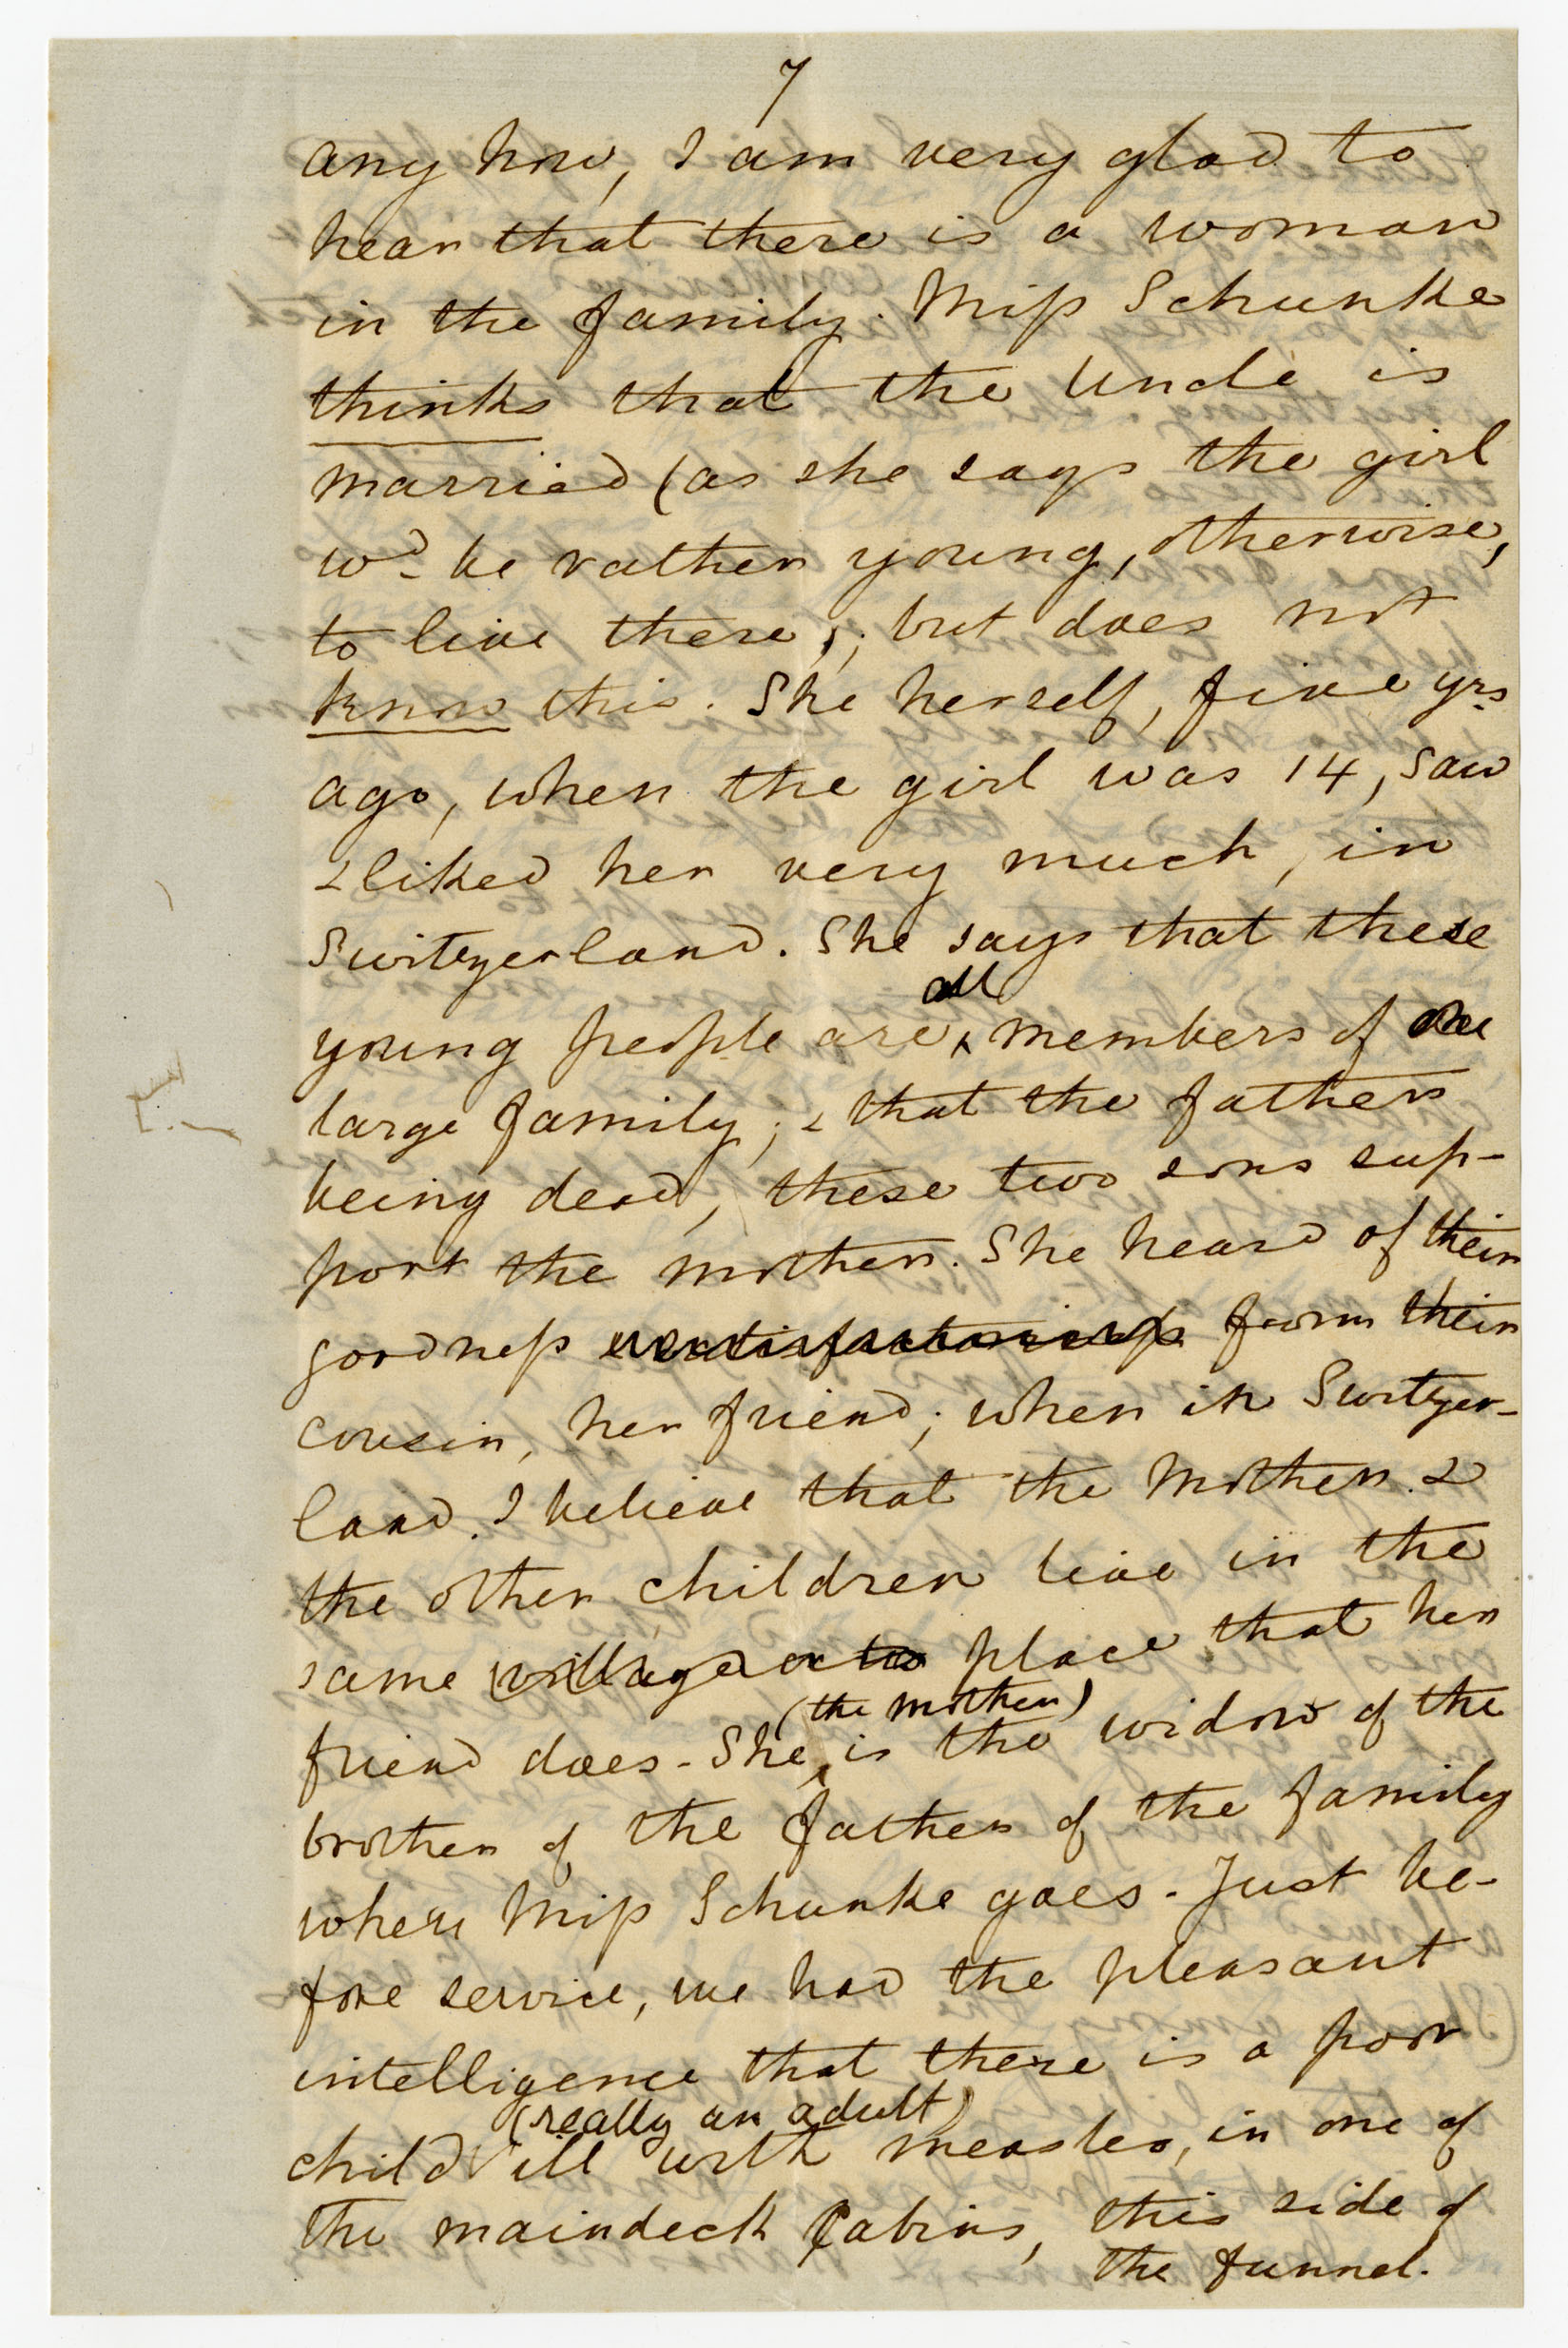 7
any how, I am very glad to
hear that there is a woman
in the family. Miss Schunke
thinks that the Uncle is
married (as she says the girl
wd. be rather young, otherwise,
to live there); but does not
know this. She herself, five yrs
ago, when the girl was 14, saw
& liked her very much, in
Switzerland. She says that these
all
young people are members of one
large family; & that the father
being dead, these two sons sup-
port the mother. She heard of their
goodness from their
cousin, her friend; when in Switzer-
land. I believe that the Mother &
the other children live in the
same village or the place that her
(the mother)
friend does. She is the widow of the
brother of the father of the family
where Miss Schunke goes. Just be-
fore service, we had the pleasant
intelligence that there is a poor
(really an adult)
child ill with measles, in one of
the maindeck Cabins, this side of
the funnel.